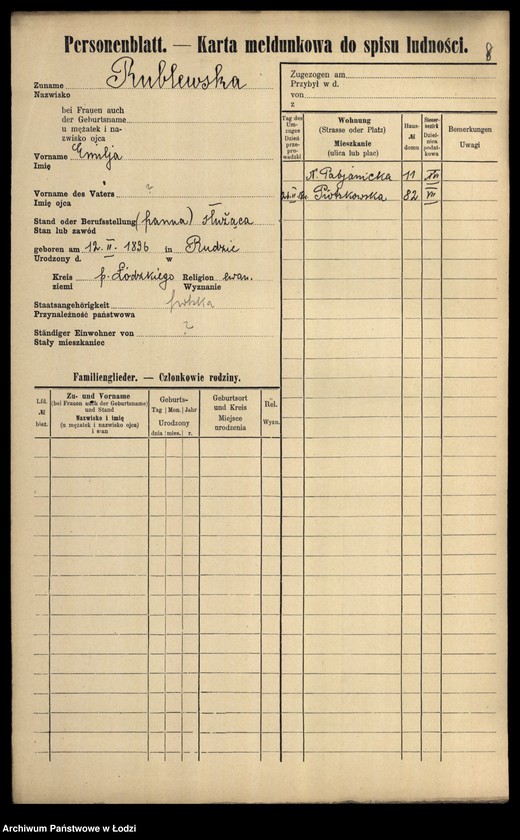 Personenblatt. — Karta meldunkowa do spisu ludności.
8
Zuname Rublewska
Nazwisko
bei Frauen auch
der Geburtsname
u mężatek i na-
zwisko ojca
Vorname Emilja
Imię
Vorname des Vaters ?
Imię ojca
Stand oder Berufsstellung (panna) służąca
Stan lub zawód
geboren am 12. II. 1896 in Rudzie
Urodzony d. w
Kreis p. Łódzkiego Religion ewan.
ziemi Wyznanie
Staatsangehörigkeit polska
Przynależność państwowa
Ständiger Einwohner von ?
Stały mieszkaniec
Familienglieder. — Członkowie rodziny.
Lfd. № bież.
Zu- und Vorname
(bei Frauen auch der Geburtsname)
und Stand
Nazwisko i imię
(u mężatek i nazwisko ojca)
i stan
Geburts-
Tag | Mon. | Jahr
Urodzony
dnia | mies. | r.
Geburtsort
und Kreis
Miejsce
urodzenia
Rel.
Wyzn.
Zugezogen am
Przybył w d.
von
z
Tag des
Um-
zuges
Dzień
prze-
prowadzki
Wohnung
(Strasse oder Platz)
Mieszkanie
(ulica lub plac)
Haus-
№
domu
Steuer-
bezirk
Dziel-
nica
podat-
kowa
Bemerkungen
Uwagi
N. Pabjanicka 11
Piotrkowska 82 VII
Archiwum Państwowe w Łodzi